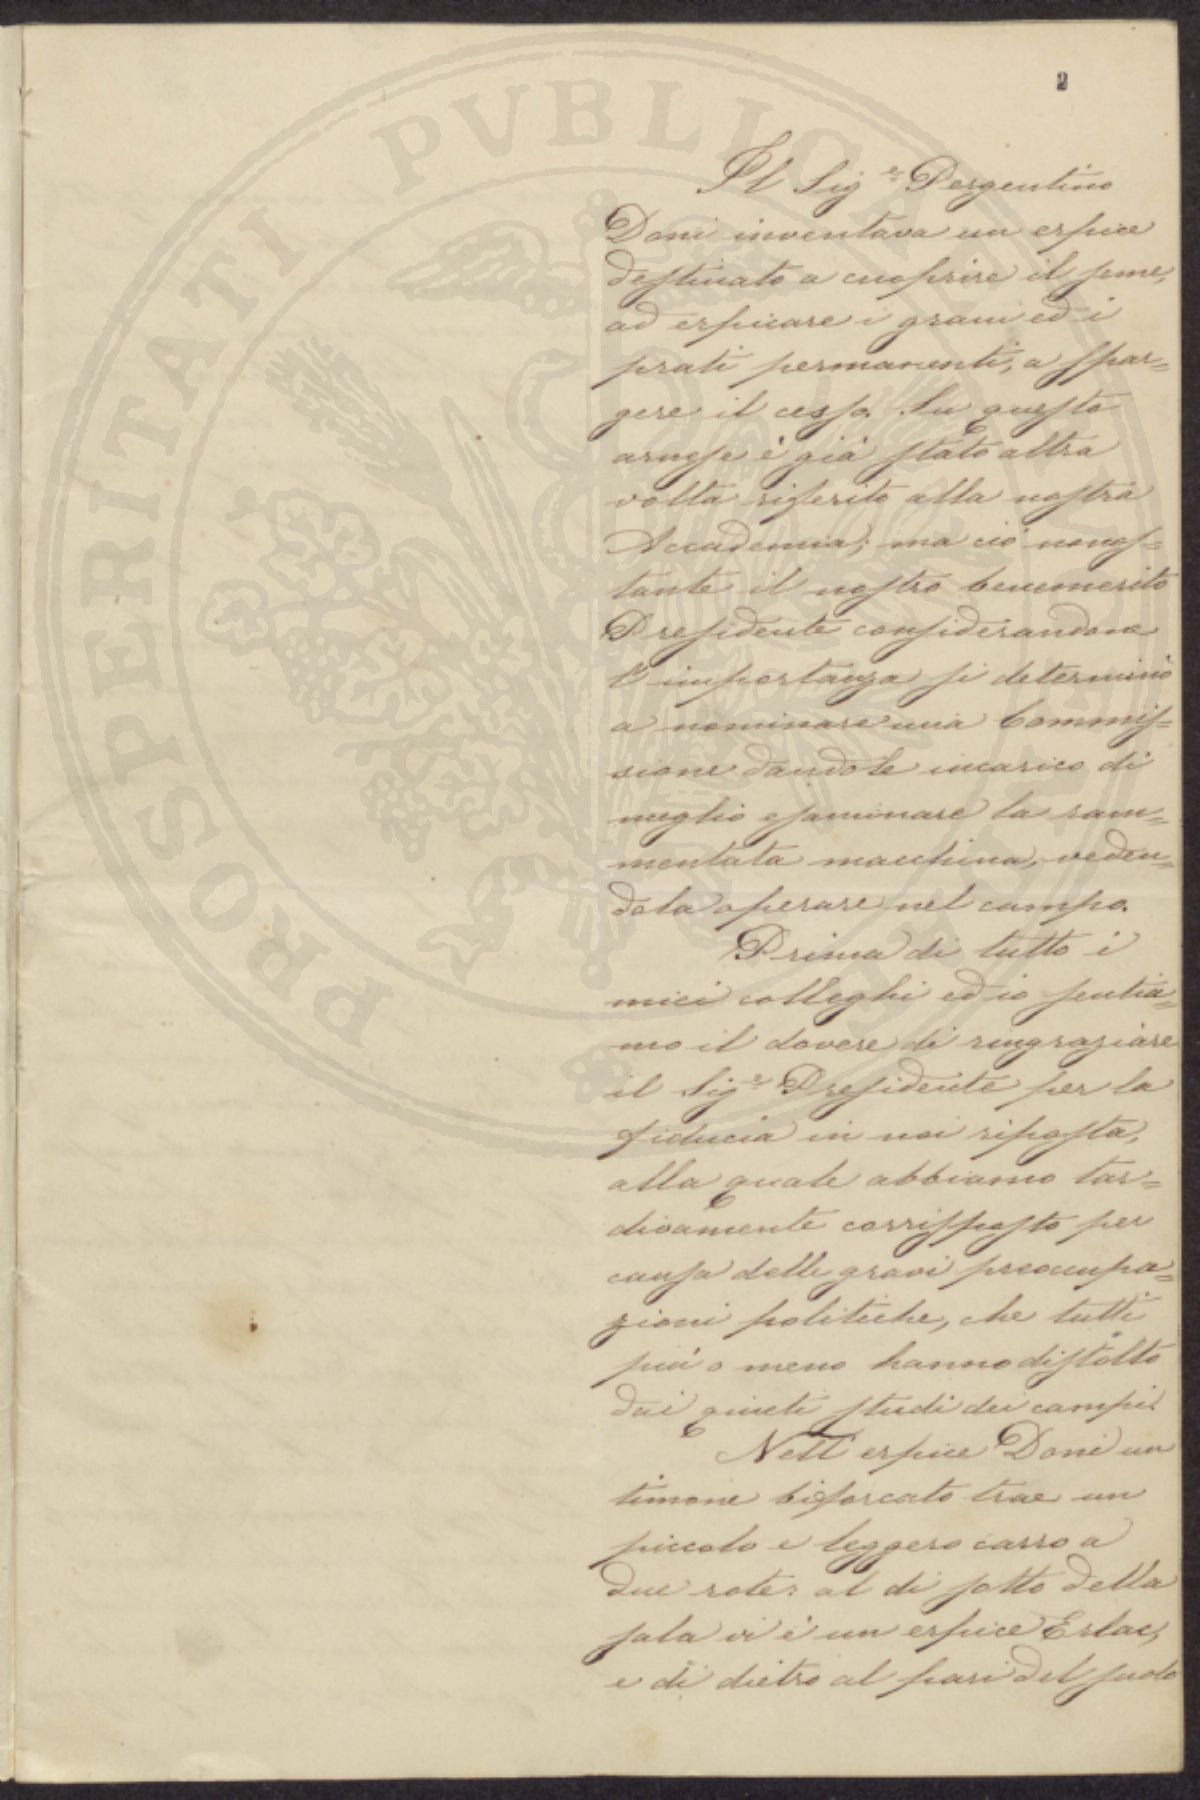 2
Il Sig.re Pergentino
Doni inventava un erpice
destinato a cuoprire il seme,
ad erpicare i grani ed i
prati permanenti, a spar=
gere il cesso. Su questo
arnese è già stato altra
volta riferito alla nostra
Accademia; ma ciò nonos=
tante il nostro benemerito
Presidente considerandone
l'importanza si determinò
a nominare una Commis=
sione dandole incarico di
meglio esaminare la ram=
mentata macchina, veden=
dola operare nel campo.
Prima di tutto i
miei colleghi ed io sentia=
mo il dovere di ringraziare
il Sig.re Presidente per la
fiducia in noi riposta,
alla quale abbiamo tar=
divamente corrisposto per
causa delle gravi preoccupa=
zioni politiche, che tutti
più o meno hanno distolto
dai quieti studi dei campi.
Nell'erpice Doni un
timone biforcato trae un
piccolo e leggero carro a
due rote: al di sotto della
sala vi è un erpice Erlac,
e di dietro al pari del suolo
PROSPERITATI PVBLICAE